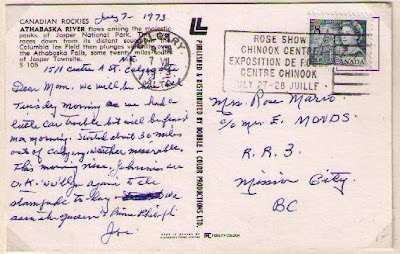 CANADIAN ROCKIES
ATHABASKA RIVER flows among the majestic
peaks of Jasper National Park. It
races down from its distant source in the
Columbia Ice Field then plunges wildly over
the Athabaska Falls, some twenty miles south
of Jasper Townsite.
S 105
July 7 - 1973
1511 Centre A St. Calgary
N.E.
Dear Mom, We will be
Tuesday morning as we had a
little car trouble but will be fixed
mon morning. Started about 30 miles
out of Calgary. Weather miserable
This morning nice, Johnnies are
O.K. Will go again to the
stampede to day. We
seen the queen & Prince Philip
Joe
PUBLISHED & DISTRIBUTED BY DOUBLE L COLOR PRODUCTIONS LTD.
CALGARY
7 VII
1973
ALTA
ROSE SHOW
CHINOOK CENTRE
EXPOSITION DE ROSES
CENTRE CHINOOK
JULY 27-28 JUILLET
8
CANADA
Mrs. Rose Mario
c/o Mrs. E. MONDS.
R. R. 3.
Mission City.
BC